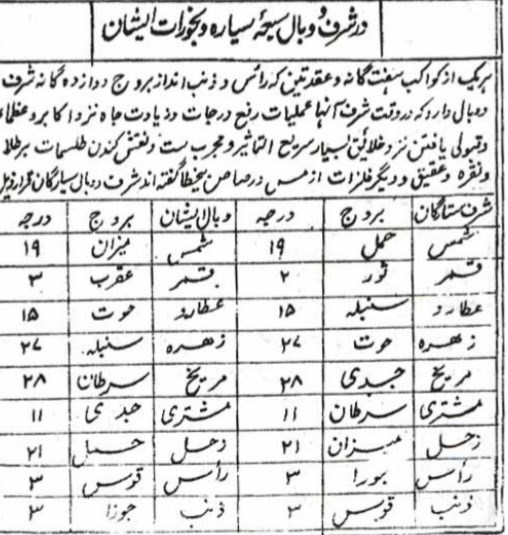 در شرف و وبال سبعۂ سیاره و بخورات ایشان
ہریک از کواکب سبعت گانه و عقدتین که رأس و ذنب انداز بروج دوازده گانه شرف
و وبال دارد که در وقت شرف آنها عملیات رفع درجات و زیادت جاه نزد اکابر و عظماء
و قبولی یافتن نزد خلائق بسیار سریع التاثیر و مجرب ست و نقش کندن طلسمات بر طلا
و نقره و عقیق و دیگر فلزات از مس و رصاص گفته اند شرف و وبال سیارگان قرار ذیل
شرف ستارگان بروج درجه وبال ایشان بروج درجه
شمس حمل ۱۹ شمس میزان ۱۹
قمر ثور ۲ قمر عقرب ۳
عطارد سنبله ۱۵ عطارد حوت ۱۵
زهره حوت ۲۷ زهره سنبله ۲۷
مریخ جدی ۲۸ مریخ سرطان ۲۸
مشتری سرطان ۱۱ مشتری جدی ۱۱
زحل میزان ۲۱ زحل حمل ۲۱
رأس جوزا ۳ رأس قوس ۳
ذنب قوس ۳ ذنب جوزا ۳